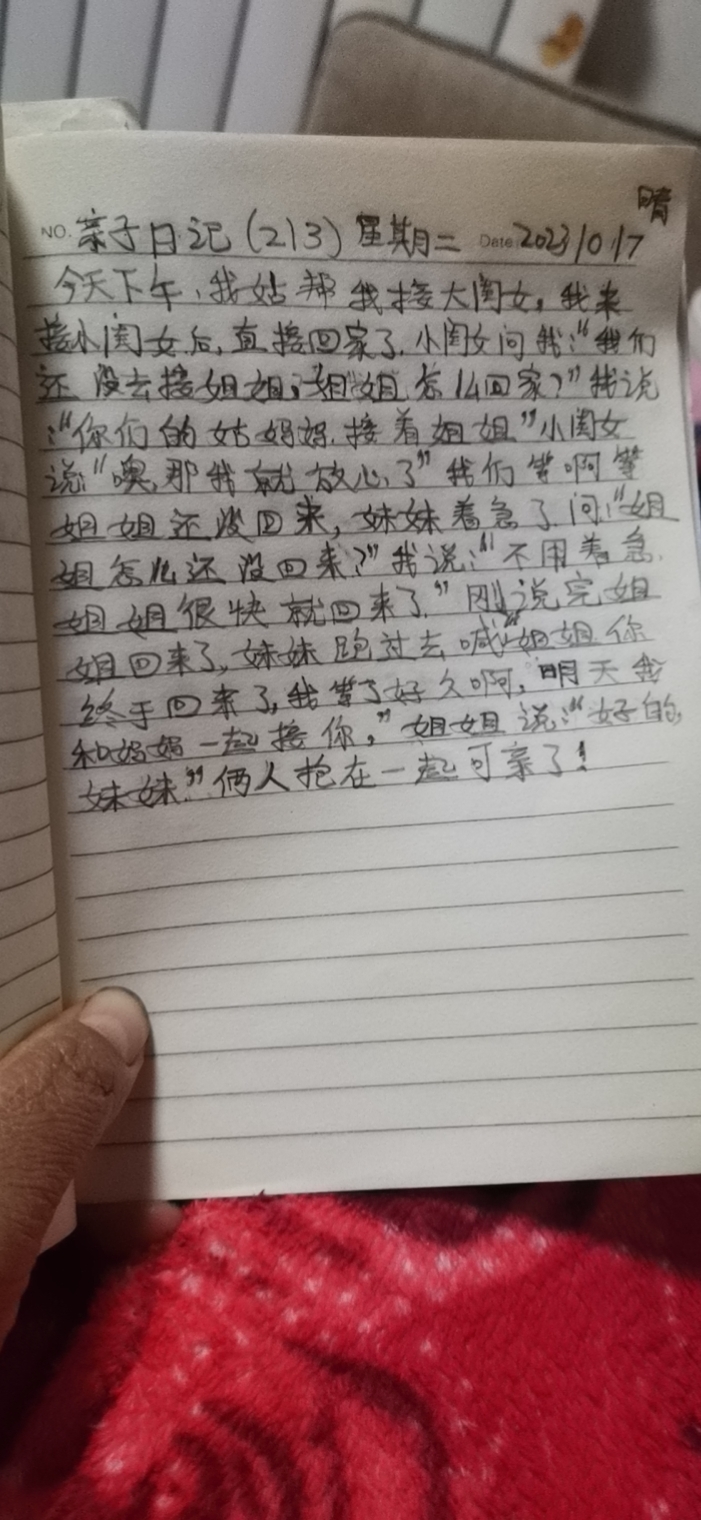 晴
NO. 亲子日记(213) 星期二 Date 2023 10.17
今天下午,我姑帮我接大闺女,我来
接小闺女后,直接回家了.小闺女问我:“我们
还没去接姐姐,姐姐怎么回家?”我说
:“你们的姑妈妈.接着姐姐”小闺女
说:“噢,那我就放心了”我们等啊等
姐姐还没回来,妹妹着急了问:“姐
姐怎么还没回来?”我说:“不用着急.
姐姐很快就回来了.”刚说完姐
姐回来了,妹妹跑过去喊“姐姐你
终于回来了,我等了好久啊,明天我
和妈妈一起接你,”姐姐说:“好的,
妹妹.”俩人抱在一起可亲了!